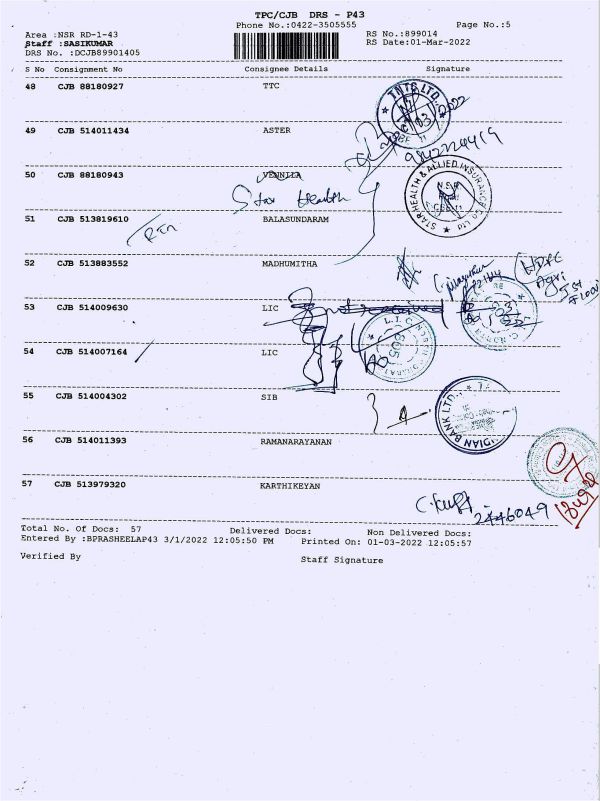 TPC/CJB DRS - P43
Phone No.:0422-3505555
Page No.:5
Area :NSR RD-1-43
RS No.:899014
Staff :SASIKUMAR
RS Date:01-Mar-2022
DRS No. :DCJB89901405
S No Consignment No Consignee Details Signature
48 CJB 88180927 TTC
49 CJB 514011434 ASTER
9842224419
50 CJB 88180943 VENNILA
Star Health
STAR HEALTH & ALLIED INSURANCE CO Ltd
51 CJB 513819610 BALASUNDARAM
RTn
52 CJB 513883552 MADHUMITHA
HDFC
Agri
1st
Floor
53 CJB 514009630 LIC
54 CJB 514007164 LIC
55 CJB 514004302 SIB
56 CJB 514011393 RAMANARAYANAN
57 CJB 513979320 KARTHIKEYAN
2446049
Total No. Of Docs: 57 Delivered Docs: Non Delivered Docs:
Entered By :BPRASHEELAP43 3/1/2022 12:05:50 PM Printed On: 01-03-2022 12:05:57
Verified By Staff Signature